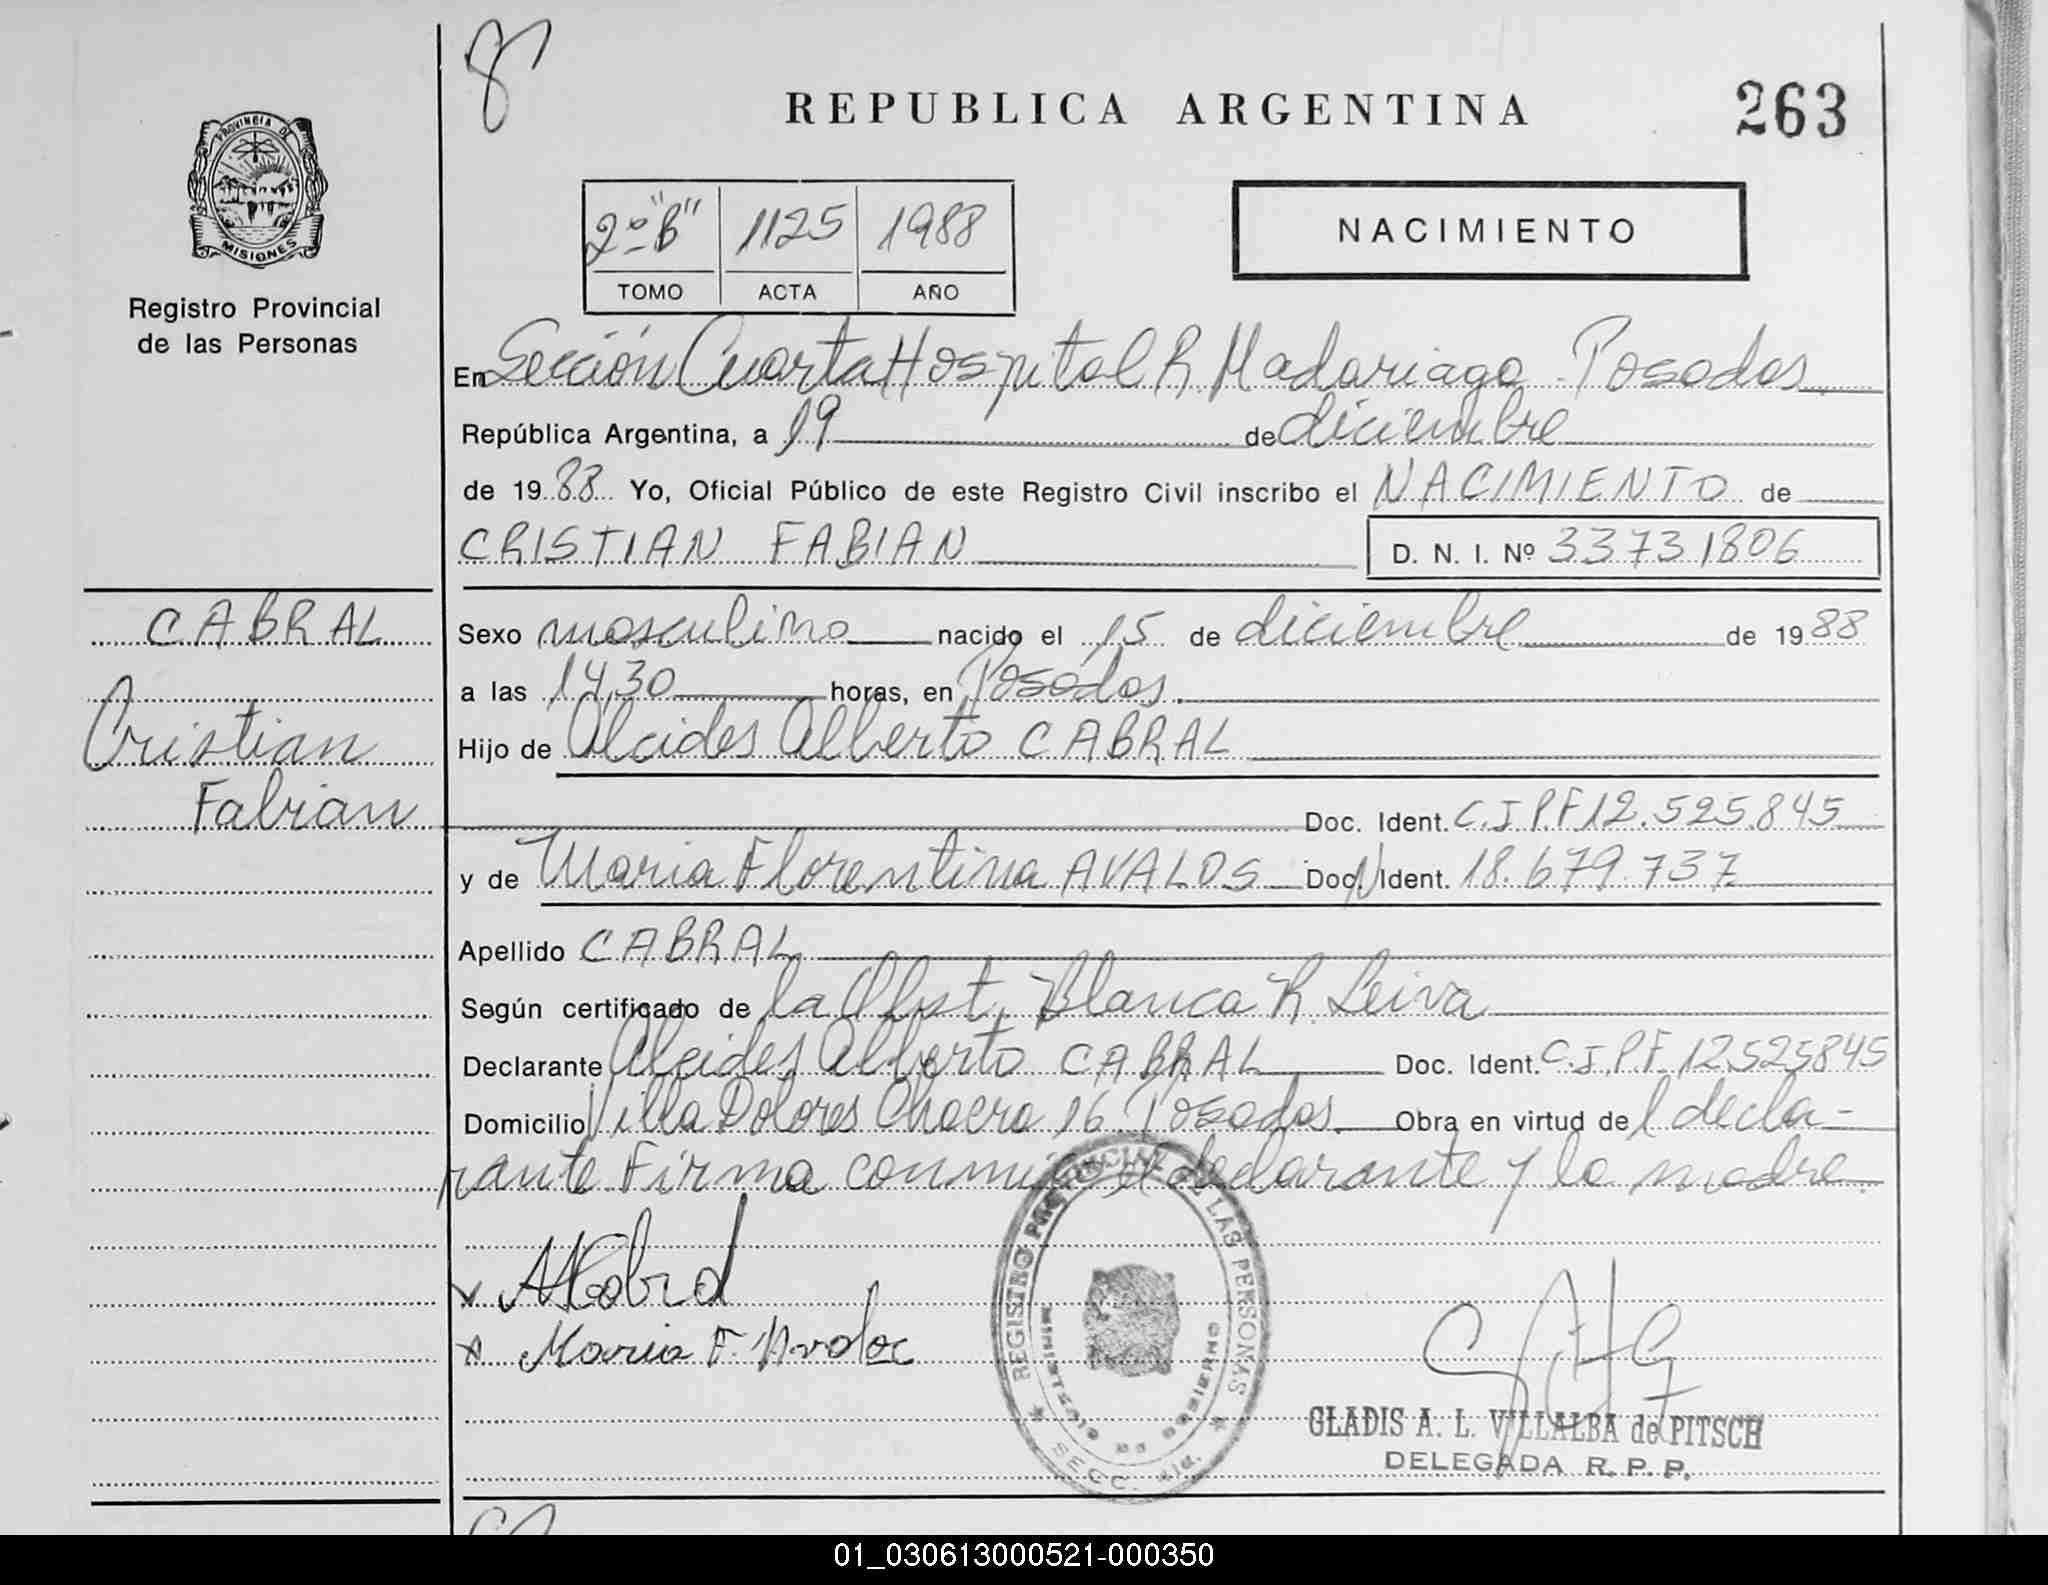 8
REPUBLICA ARGENTINA
263
PROVINCIA DE
MISIONES
Registro Provincial
de las Personas
2º "B" 1125 1988
TOMO ACTA AÑO
NACIMIENTO
En Sección Cuarta Hospital R. Madariaga - Posadas
República Argentina, a 19 de diciembre
de 1988 Yo, Oficial Público de este Registro Civil inscribo el NACIMIENTO de
CRISTIAN FABIAN D. N. I. Nº 33731806
CABRAL
Cristian
Fabian
Sexo masculino nacido el 15 de diciembre de 1988
a las 14,30 horas, en Posadas.
Hijo de Alcides Alberto CABRAL
Doc. Ident. C.I.P.F. 12.525.845
y de Maria Florentina AVALOS Doc. N Ident. 18.679.737
Apellido CABRAL
Según certificado de la Obst. Blanca R. Leiva
Declarante Alcides Alberto CABRAL Doc. Ident. C.I.P.F. 12525845
Domicilio Villa Dolores Chacra 16 Posadas. Obra en virtud de l decla-
rante Firma conmigo el declarante y la madre.
x ACabral
x Maria F. Avalos
REGISTRO PROVINCIAL DE LAS PERSONAS
MINISTERIO DE GOBIERNO
SECC. 4ta.
GLADIS A. L. VILLALBA de PITSCH
DELEGADA R. P. P.
01_030613000521-000350